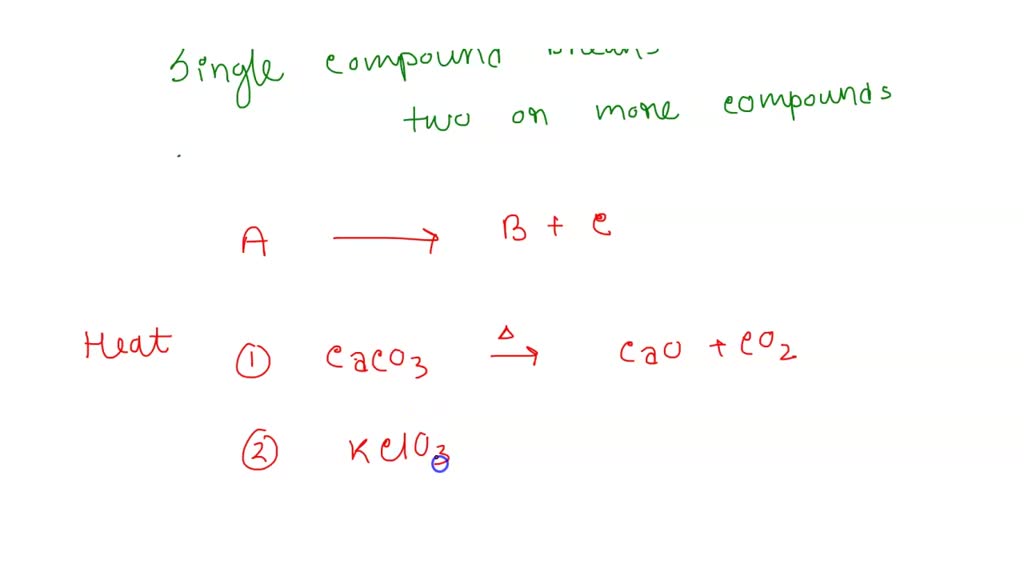 Single compound
two on more compounds
A → B + C
Heat ① CaCO3 Δ→ CaO + CO2
② KClO3